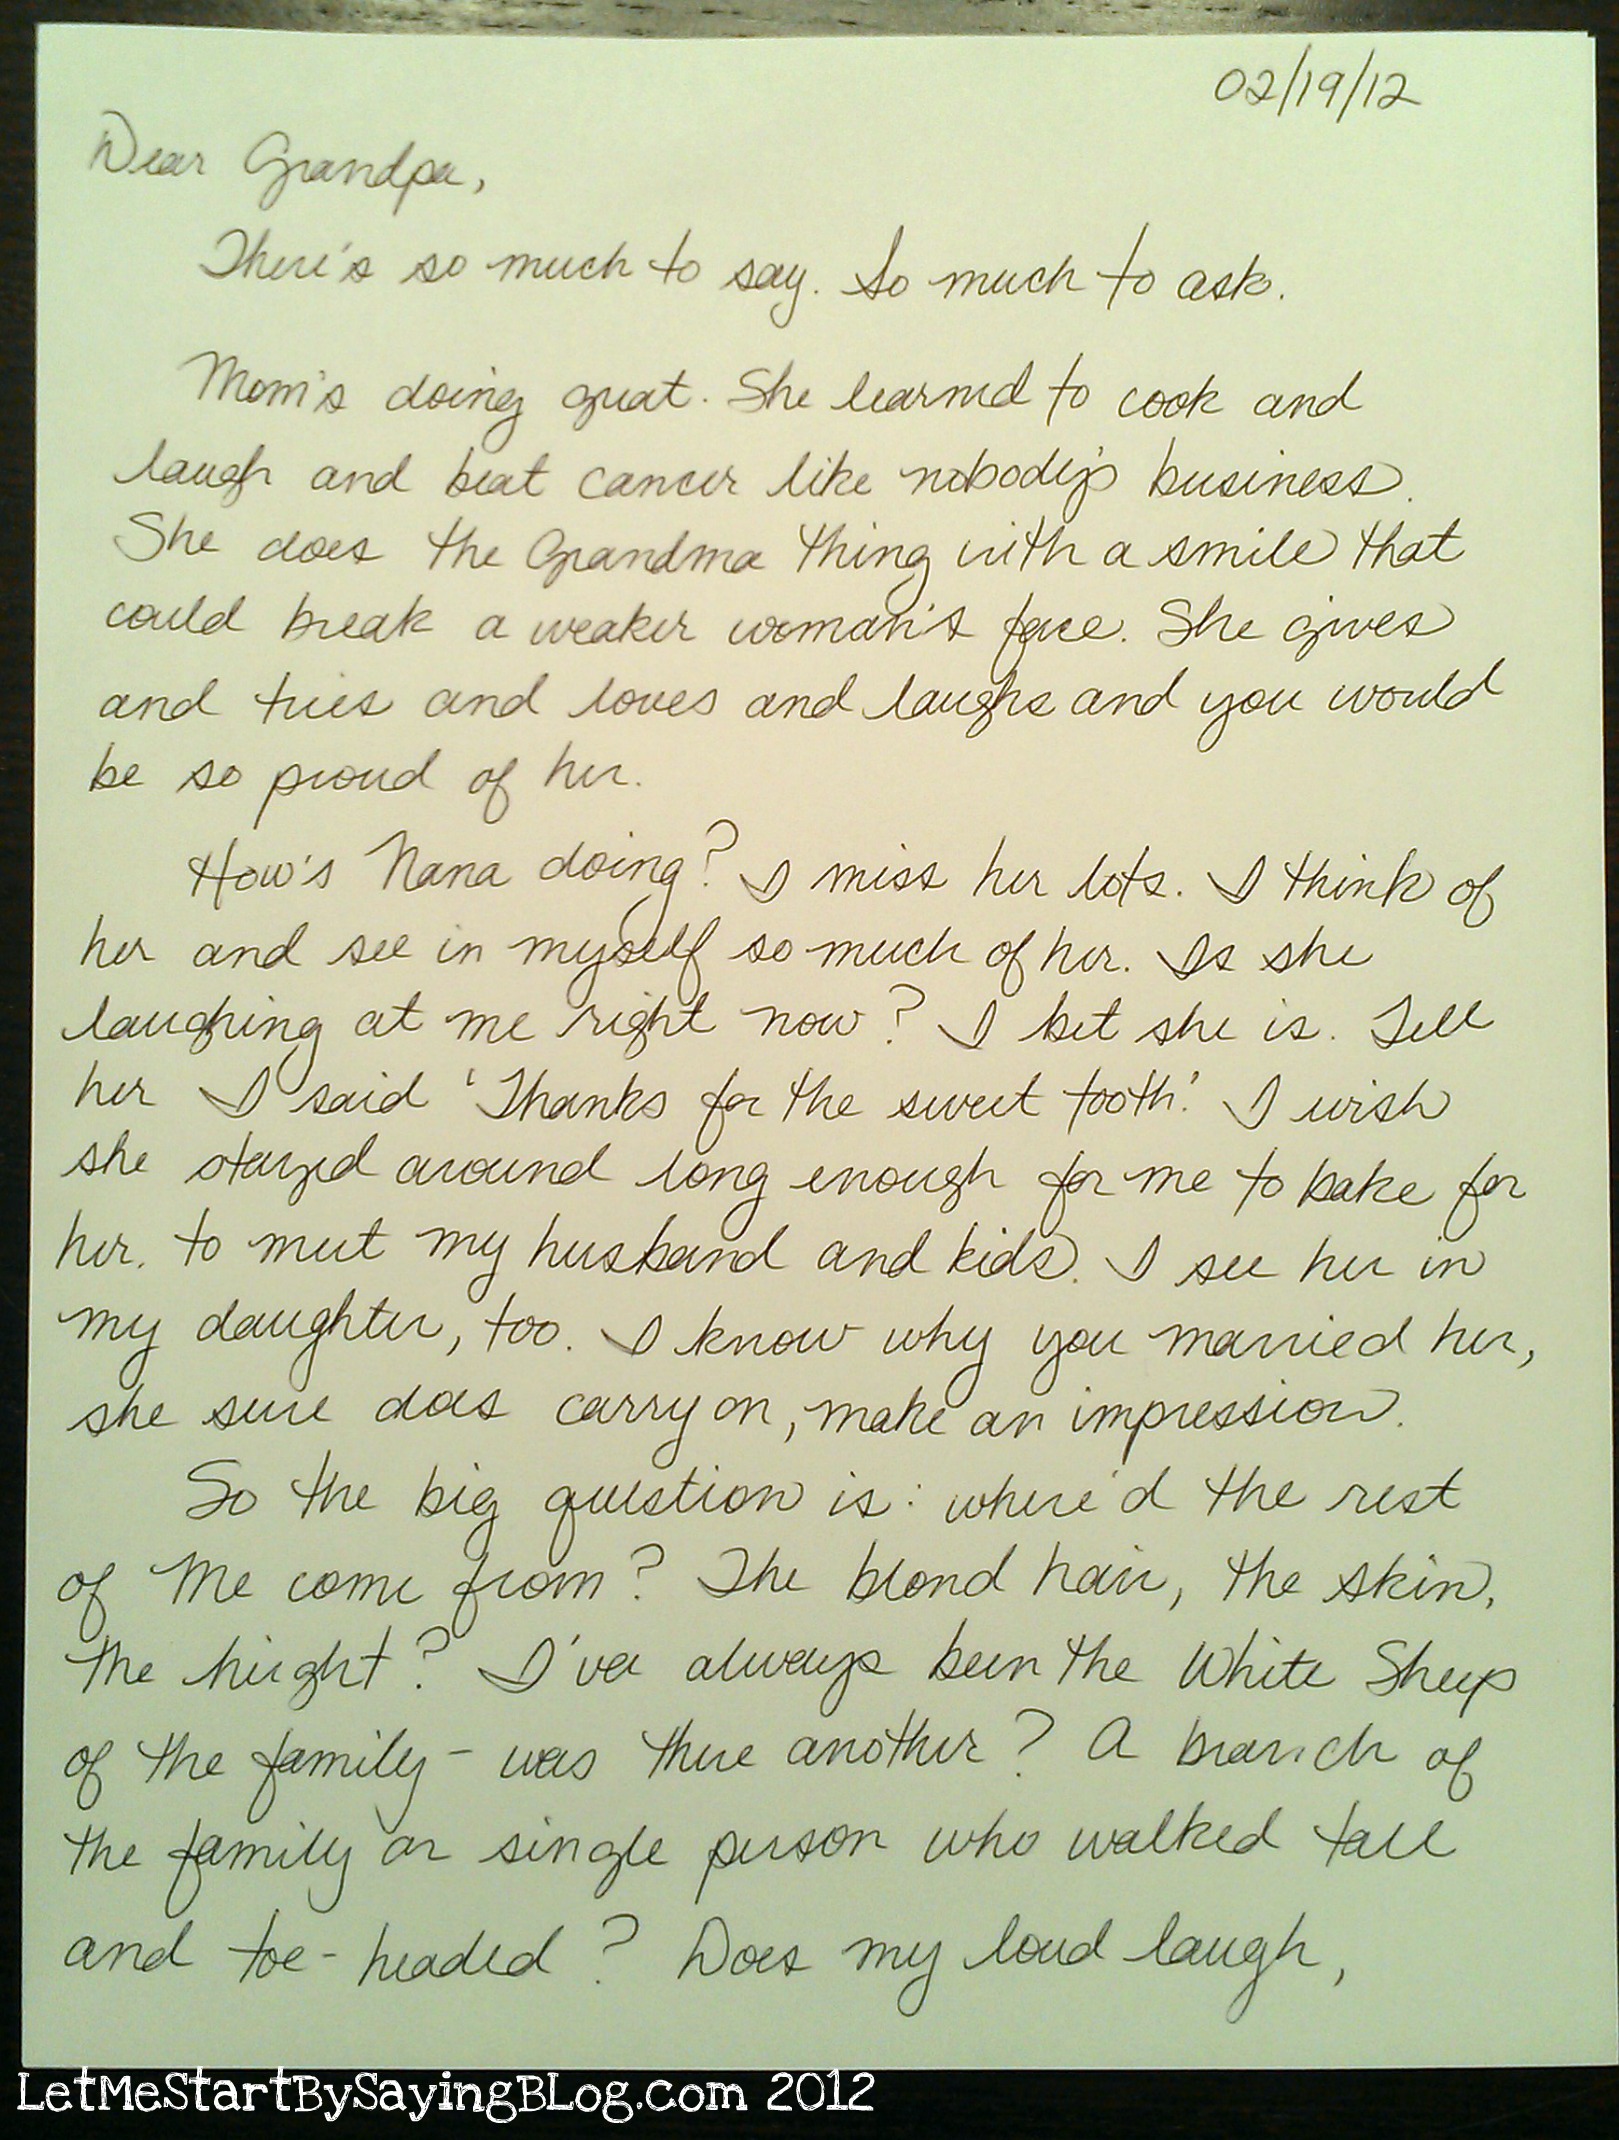 02/19/12
Dear Grandpa,
There's so much to say. So much to ask.
Mom's doing great. She learned to cook and
laugh and beat cancer like nobody's business.
She does the Grandma thing with a smile that
could break a weaker woman's face. She gives
and tries and loves and laughs and you would
be so proud of her.
How's Nana doing? I miss her lots. I think of
her and see in myself so much of her. Is she
laughing at me right now? I bet she is. Tell
her I said 'Thanks for the sweet tooth.' I wish
she stayed around long enough for me to bake for
her. to meet my husband and kids. I see her in
my daughter, too. I know why you married her,
she sure does carry on, make an impression.
So the big question is: where'd the rest
of me come from? The blond hair, the skin,
the height? I've always been the White Sheep
of the family - was there another? A branch of
the family or single person who walked tall
and toe-headed? Does my loud laugh,
LetMeStartBySayingBlog.com 2012